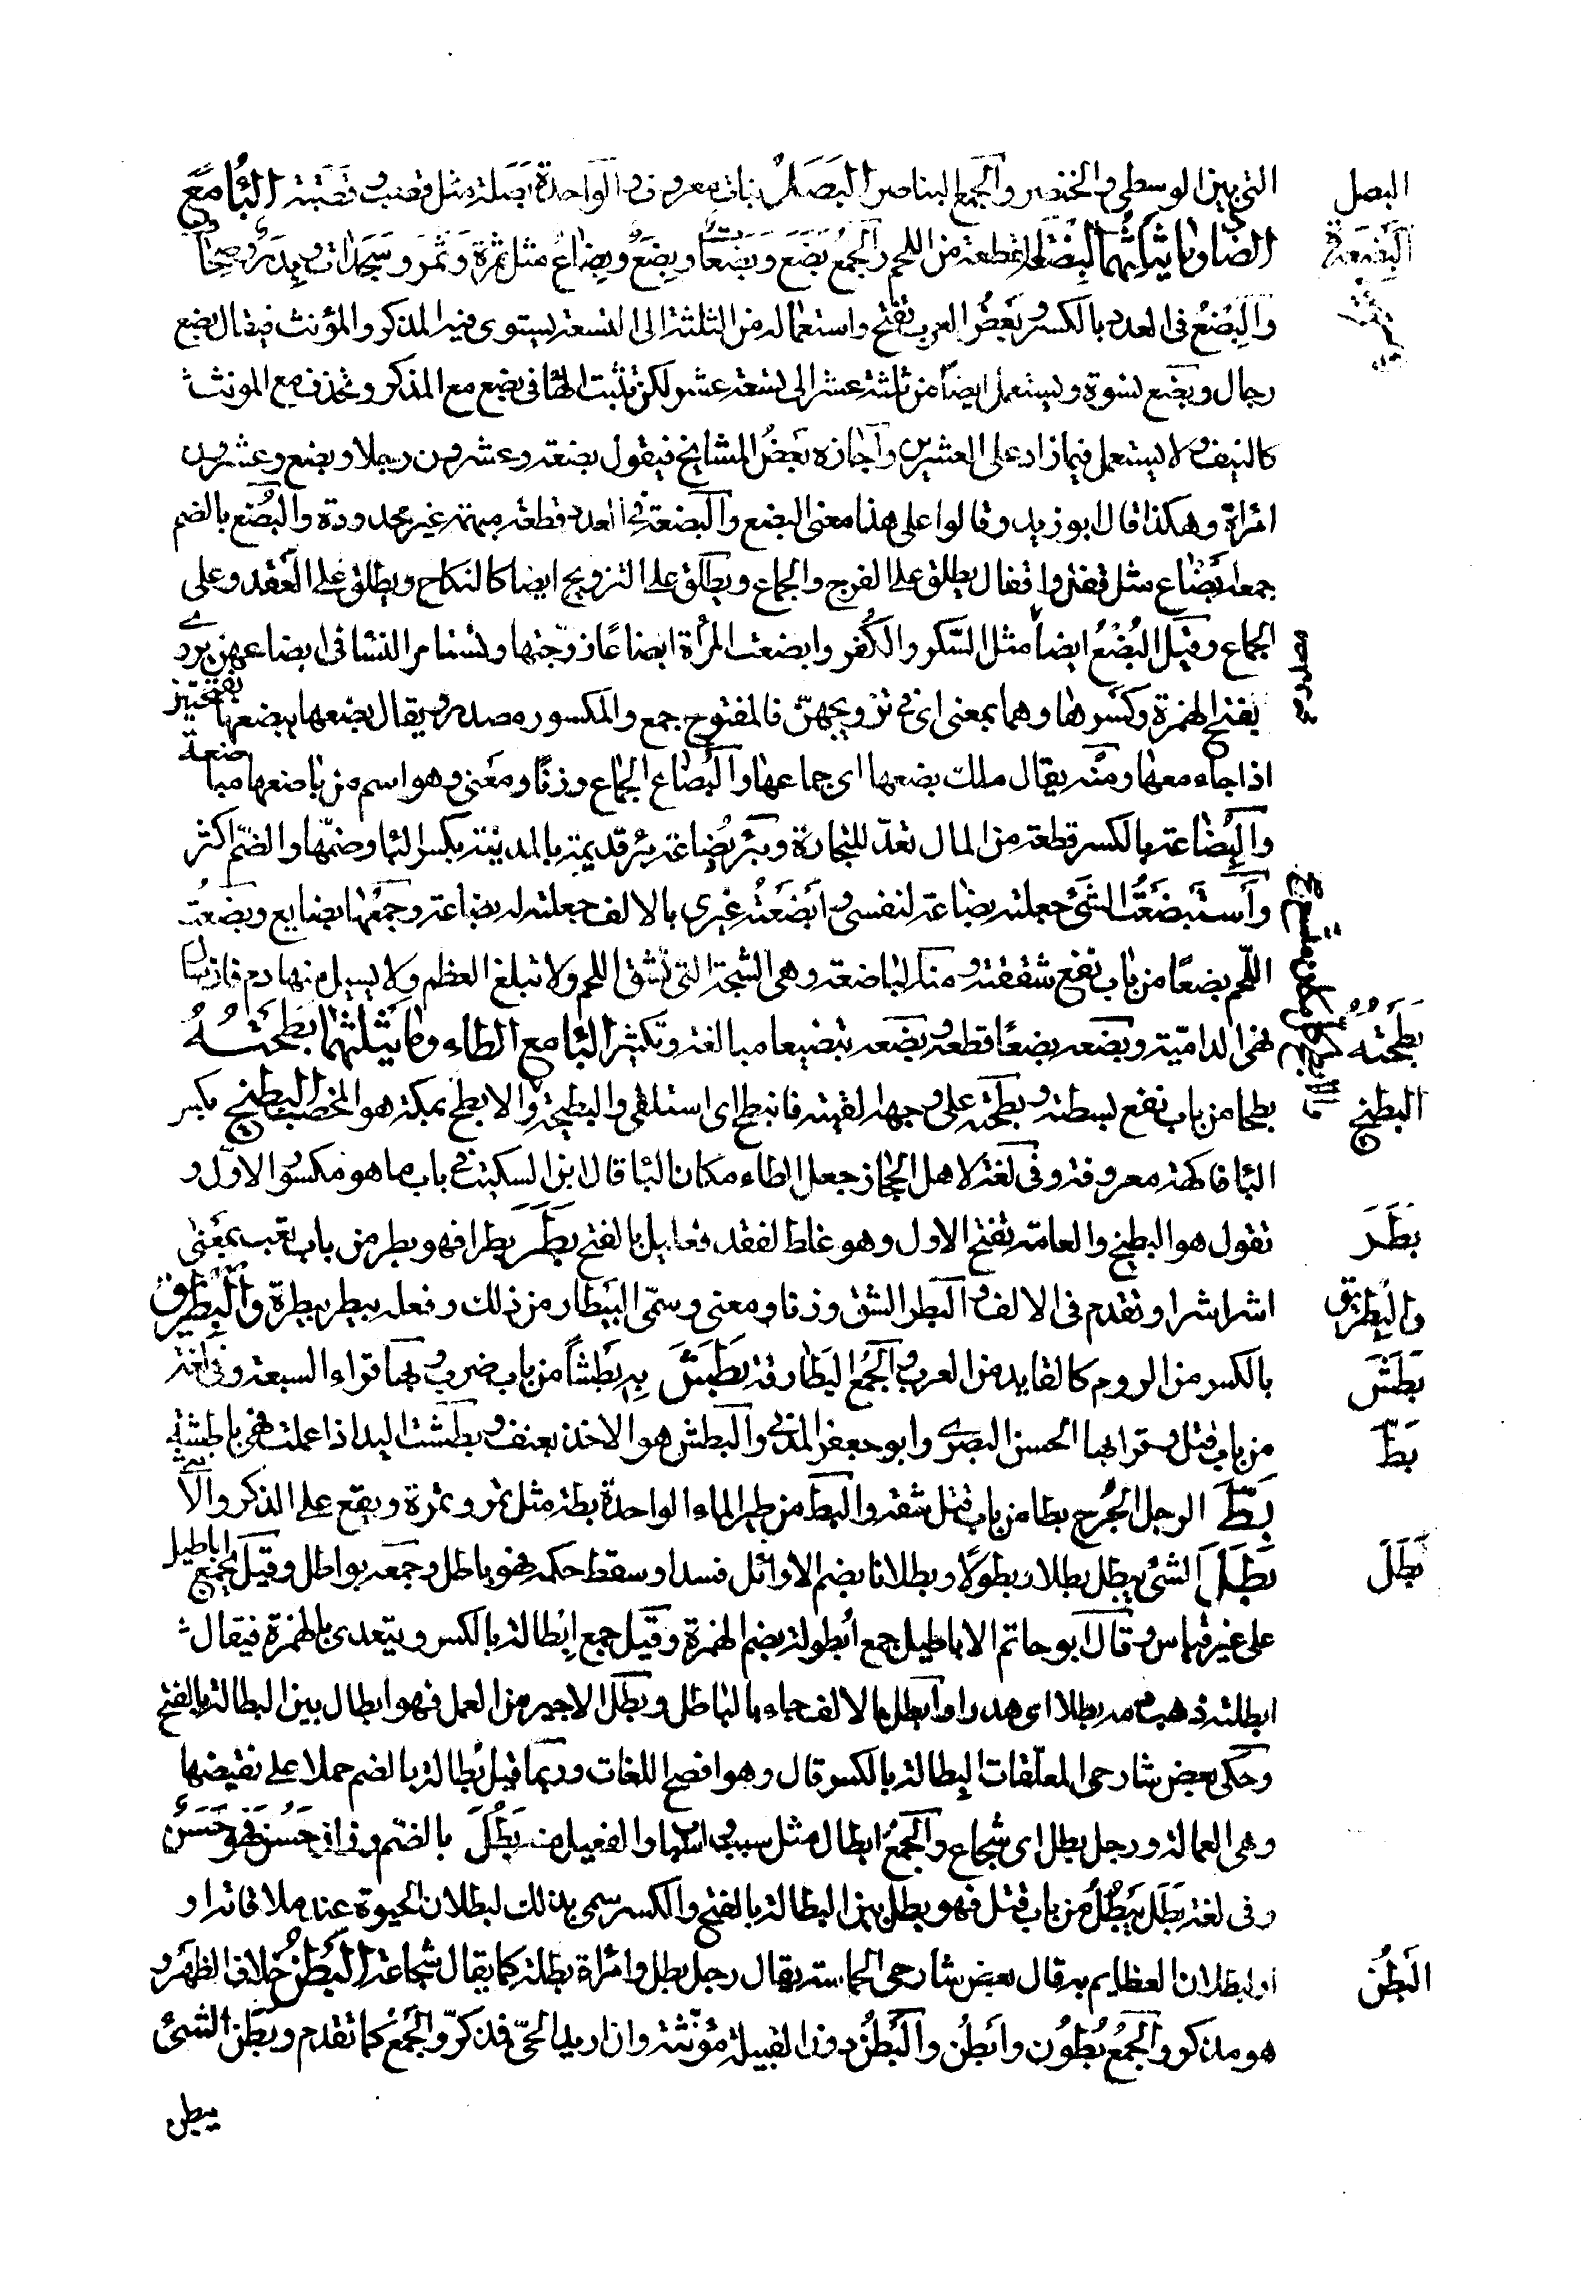 التي بين الوسطى والخنصر والجمع البناصر البَصَلُ نبات معروف و الواحدة بصلة مثل قصب وقصبة البا مع
البصل
الضاد وما يثلثهما البضعة القطعة من اللحم والجمع بَضَع وبَضَعات وبِضَعٌ وبِضاعٌ مثل تمرة وتَمر وسَجَدات وبِدَر وصِحاف
البَضعة
والبِضعُ في العدد بالكسر وبعضُ العرب تفتح واستعماله من الثلثة الى التسعة يستوى فيه المذكر والمؤنث فيقال بضع
رجال وبضع نسوة ويستعمل ايضاً من ثلثة عشر الى تسعة عشر لكن تثبت الها في بضع مع المذكر وتحذف مع المونث
كالنيف و لا يستعمل فيما زاد على العشرين وأجازه بعضُ المشايخ فيقول بضعة وعشرون رجلا وبضع وعشرون
امرأة وهكذا قال ابو زيد وقالوا على هذا معنى البضع والبضعة في العدد قطعة مبهمة غير محدودة والبُضع بالضم
جمعه بضاع مثل قفل واقفال يطلق على الفرج والجماع ويطلق على التزويج ايضا كالنكاح ويطلق على العقد وعلى
الجماع وقيل البُضْعُ ايضاً مثل السّكر والكُفر وابضعت المرأة ابضاعًا زوّجتها وتستامر النسا في ابضاعهن يروى
بفتح الهمزة وكسرها وهما بمعنى اى في تزويجهنّ فالمفتوح جمع والمكسور مصدر و يقال بضعها يبضعها بفتحتين
اذا جامعها ومنه يقال ملك بضعها اى جماعها والبُضاع الجماع وزنًا ومعنى وهو اسم من باضعها مباضعة
والبِضاعة بالكسر قطعة من المال تعدّ للتجارة وبئر بُضاعة بئر قديمة بالمدينة بكسر البا وضمّها والضمّ اكثر
وأستبضَعْتُ الشئ جعلته بضاعة لنفسى و أبضَعْتُه غيرى بالالف جعلته له بضاعة وجمعها بضايع وبضعت
اللّحم بضعًا من باب نفع شققته و منه الباضعة وهى الشجة التي تشق اللحم ولا تبلغ العظم ولا يسيل منها دم فان سال
فهى الداميّة وبضعه بضعًا قطعه و بضعه تبضيعا مبالغة وتكثير البا مع الطاء وما يثلثهما بَطَحْتُهُ
بَطَحْتُهُ
بطحا من باب نفع بسطته و بطحته على وجهه القيته فانبطح اى استلقى والبطيحة والابطح بمكة هو المحصب البطيخ بكسر
البطيخ
البا فاكهة معروفة وفى لغة لاهل الحجاز جعل الطاء مكان البا قال ابن السكيت في باب ما هو مكسور الاوّل و
تقول هو البطيخ والعامة تفتح الاول وهو غلط لفقد فعليل بالفتح بَطِرَ بطرا فهو بطر من باب تعب بمعنى
بَطَرَ
اشر اشرا وتقدم فى الالف و البطر الشق وزنا ومعنى وسمّى البَيطار من ذلك وفعله بيطر بيطرة والبِطريق
والبِطريق
بالكسر من الروم كالقايد من العرب و الجَمْعُ البَطارقة بَطَشَ بِهِ بَطْشاً من باب ضرب و بها قراء السبعة وفى لغة
بَطَشَ
من باب قتل وقرا بها الحسن البصرى وابو جعفر المدنى والبطش هو الاخذ بعنف و بطشت اليد اذا عملت فهى باطشة
بَطّ
بَطّ الرجل الجُرح بطا من باب قتل شقه والبط من طير الماء الواحدة بطة مثل تمر وتمرة ويقع على الذكر والانثى
بَطَلَ الشئ يبطل بطلا وبطولًا وبطلانا بضم الاوائل فسد او سقط حكمه فهو باطل وجمعه بواطل وقيل يجمع اباطيل
بَطَلَ
على غير قياس و قال ابو حاتم الاباطيل جمع أبطولة بضم الهمزة وقيل جمع ابطالة بالكسر ويتعدى بالهمزة فيقال
ابطلته و ذهب دمه بطلا اى هدرا و أبطل بالالف جاء بالباطل وبطل الاجير من العمل فهو ابطال بين البطالة بالفتح
وحكى بعض شارحى المعلّقات البِطالة بالكسر قال وهو افصح اللغات وربّما قيل بُطالة بالضم حملا على نقيضها
وهى العمالة ورجل بطل اى شجاع والجَمعُ ابطال مثل سبب و اسباب والفعل منه بَطُلَ بالضم وزان حَسُنَ فهو حَسَنٌ
وفى لغة بَطَل يَبطُلُ من باب قتل فهو بطل بين البطالة بالفتح والكسر سمى بذلك لبطلان الحيوة عند ملاقاته او
او لبطلان العظايم به قال بعض شارحى الحماسة يقال رجل بطل وامرأة بطلة كما يقال شجاعة البَطنُ خلاف الظهر و
البَطنُ
هو مذكر والجَمْعُ بُطُون وابطُن والبَطنُ دون القبيلة مؤنثة وان اريد الحىّ فذكرّ والجَمْعُ كما تقدم وبَطَن الشئ
يبطن